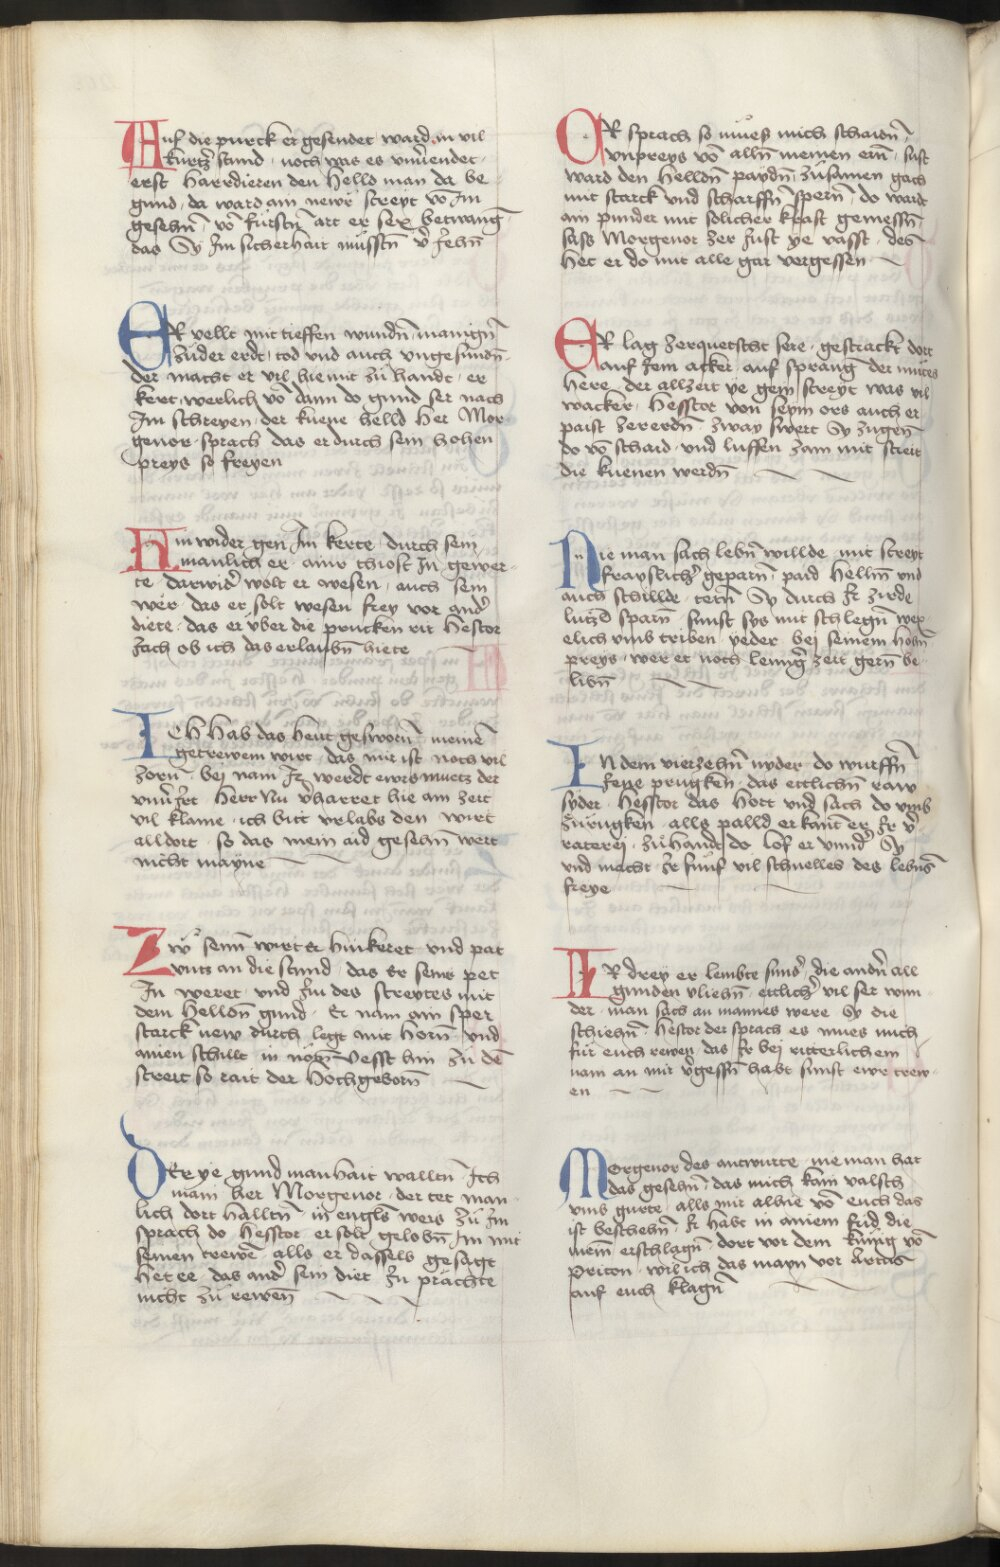 Auf die prucken er gesendet ward in vil
kurtzer stund · noch was es vnuerendet ·
erst harrdieren den helld man da be
gund · da ward am newr streyt vō Im
gesehn̄ · vō kurtzer art er sex betwang
das Sy Im sicherhait müsstn̄ v̄ Jehn̄
ER vellt mit tieffen wundn̄ manign̄
zuder erde · tod vnd auch vngesundn̄ ·
der macht er vil hie mit zu handt · er
kert werlich vō dann do gund ser nach
Im schreyen · der kuene helld her Mor
genor · sprach das er durch sein hohen
preys so freyen
Hin wider gen Im kerte · durch sein
manlich er · ainr thiost In gewer
te darwider wolt er wesen · auch sein
wer · das er solt wesen frey vor ander
diete · das er über die prucken rit Hestor
Jach ob ich das erlaubn̄ hiete
ICh hab das heut gesworn̄ · meinē
getrewem wirt · das mir ist noch vil
zorn̄ · bey nam Ir werdt ewrs muetz der
vnuerJrt Herr Nu v̄harret hie am zeit
vil klaine · ich bitt vrlabs den wirt
alldort · so das mein aid gesehn̄ wert
nicht mayne
Zw seim wirt er hinkeret · vnd pat
vntz an die stund · das Er seins pet
In weret · vnd Im des streytes mit
dem helldn̄ gund · Er nam ain sper
starck new durch legt mit horn̄ · vnd
ainen schillt in not vesst hin zu dē
streit so rait der hochgeborn̄
DEr ye gund manhait walltn̄ · Ich
main her Morgenor · der tet man
lich dort halltn̄ · in engls weis zu Im
sprach do Hesstor er solt gelobn̄ Im mit
seinen trewē · alls er dassels gesagt
het ee · das ander sein diet In prächte
nicht zu rewen̄
ER sprach so mues mich schaidn̄ ·
vnpreys vō alln̄ meinen ern̄ · sust
ward den helldn̄ paydn̄ · züsamen gach
mit starck vnd scharffn̄ spern̄ · do ward
ain punder mit solicher krafft gemessn̄ ·
sass Morgenor zer Just ye vasst · des
het er do mit alle gar vergessen
ER lag zerquetscht sere · gestrackt dort
auf Jem acker · auf sprang der mutes
here · der allzeit ye gern streyt was vil
wacker · Hesstor von seim ors auch er
paist zererdn̄ · zway swert Sy zugen̄
do vō schaid · vnd luffen zam mit streit
die kuenen werdn̄
Nie man sach lebn̄ willde · mit streyt
frayslicher geparn̄ · paid hellm̄ vnd
auch schillde · tetn̄ Sy durch Ir zirde
lützel sparn̄ · sunst sys mit schlegn̄ wer
elich vmb triben · yeder bei seinem hohn̄
preys · wer er noch lennger zeit gern̄ be
libn̄
IN dem vierzehn̄ nyder · do wurffn̄
Jene prugken · das ettlichn̄ raw
syder · Hesstor das hort vnd sach do vmb
zürugken · alls palld er kant er Ir v̄
raterey · zuhandt do lof er vnnder Sy
vnd macht Ir funf vil schnelles des lebns̄
freye
IR drey er lembte sunder · die andn̄ all
gunden vliehn̄ · ettlicher vil ser wun
der · man sach an mannes were Sy die
schiehn̄ · Hestor der sprach es mues mich
für euch rewen · das Ir bei ritterlichem
nam an mir v̄gessn̄ habt sunst ewr trew
en
Morgenor des antwurte · nie man hat
das gesehn̄ · das mich kain valsch
vmb gurte · alls mir alhie vō euch das
ist beschehn̄ · Ir habt in ainem frid die
meīn erschlagn̄ · dort vor dem künig vō
Priton · wil ich das mayn vor Artus
auf euch klagn̄